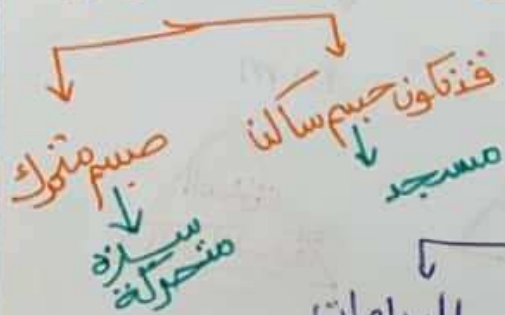 فقد تكون جسم ساكنا
مسجد
جسم متحرك
سيارة
متحركة